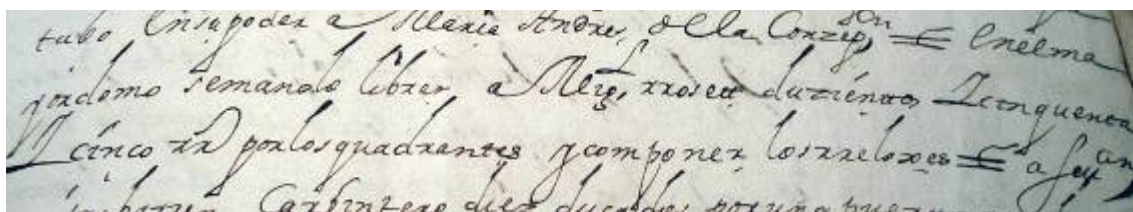 tubo Ensupoder a Maria Andres de la Conzepon = Enelma
yordomo semando librar a Melr rroseta duzientos Zcinquenta
Z cinco RR por los quadrantes y componer los rreloxes = a
Carpintero diez ducados por una puerta